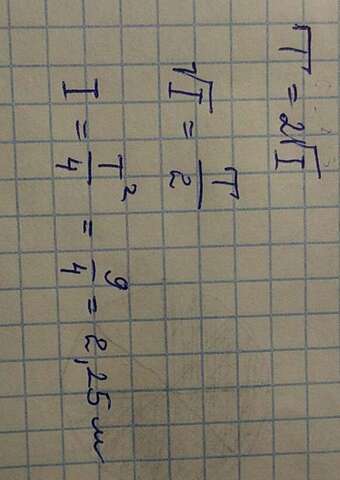 T = 2√I
√I = T/2
I = T²/4 = 9/4 = 2,25 м